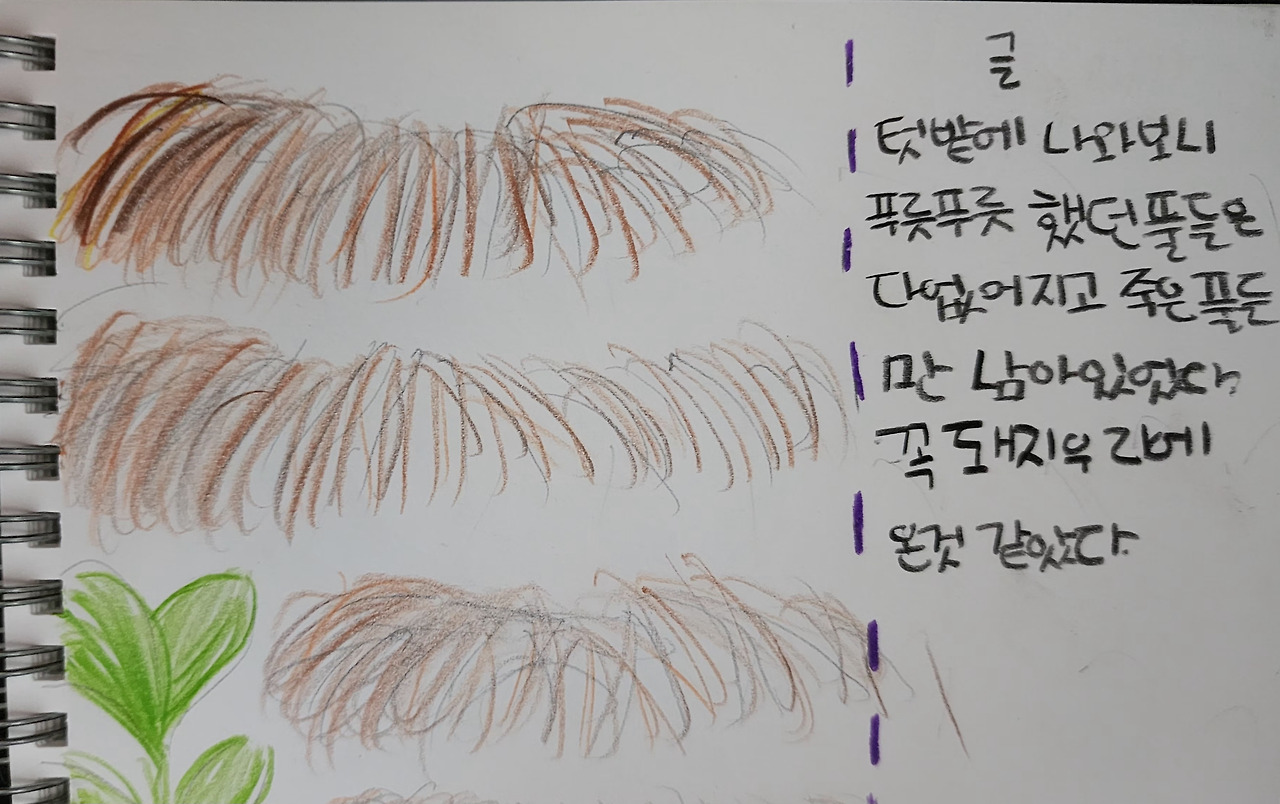 글
텃밭에 나와보니
푸릇푸릇 했던풀들은
다없어지고 죽은풀들
만 남아있었다.
꼭 돼지우리에
온것 같았다.